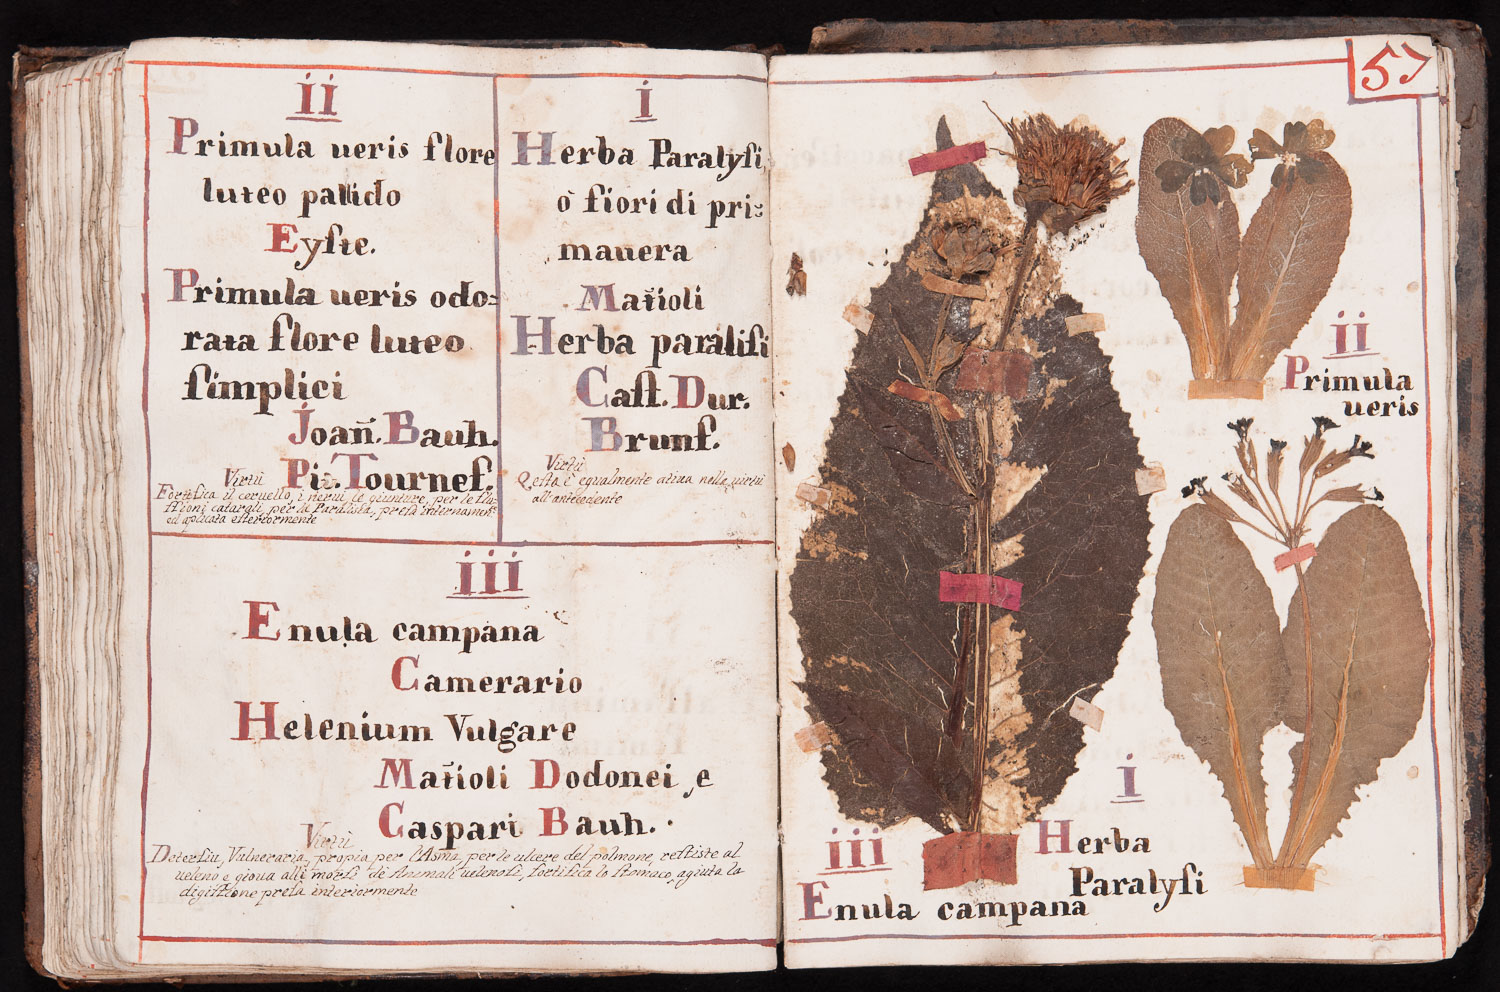 ii
Primula ueris flore
luteo pallido
Eyſte.
Primula ueris odo=
rata flore luteo
ſimplici
Joañ. Bauh.
Pit. Tournef.
Virtù
Fortifica il ceruello, i nerui le giunture, per le flu-
ſſioni catarali, per la Paraliſia, preſa internamen-
ed aplicata eſteriormente
i
Herba Paralyſi
ò fiori di pri=
mauera
Matioli
Herba paraliſi
Caſt. Dur.
Brunf.
Virtù
Qeſta è equalmente atiua nelle uirtù
all'antecedente
iii
Enula campana
Camerario
Helenium Vulgare
Matioli Dodonei, e
Caspari Bauh.
Virtù
Deterſiu, Vulneraria, propia per l'Asma, per le ulcere del polmone, reſiste al
ueleno e gioua alli morſi de Animali uelenoſi, fortifica lo ſtomaco, agiuta la
digiſtione preſa interiormente
57
ii
Primula
ueris
i
Herba
Paralyſi
iii
Enula campana